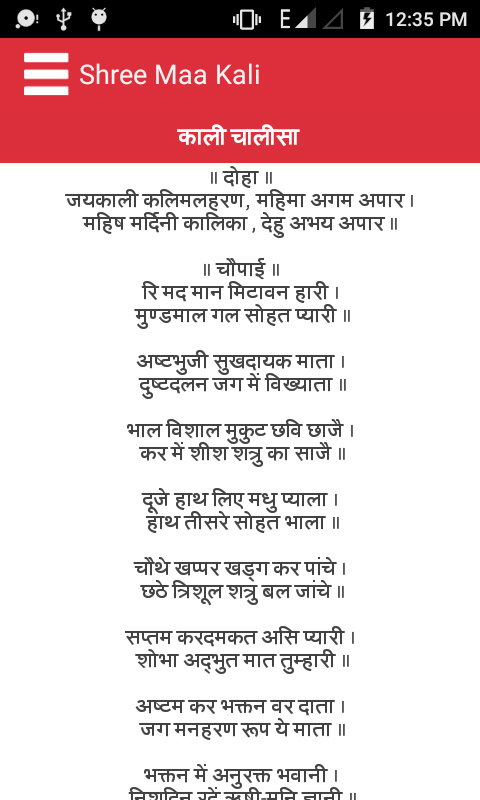 E 12:35 PM
Shree Maa Kali
काली चालीसा
॥ दोहा ॥
जयकाली कलिमलहरण, महिमा अगम अपार ।
महिष मर्दिनी कालिका , देहु अभय अपार ॥
॥ चौपाई ॥
रि मद मान मिटावन हारी ।
मुण्डमाल गल सोहत प्यारी ॥
अष्टभुजी सुखदायक माता ।
दुष्टदलन जग में विख्याता ॥
भाल विशाल मुकुट छवि छाजै ।
कर में शीश शत्रु का साजै ॥
दूजे हाथ लिए मधु प्याला ।
हाथ तीसरे सोहत भाला ॥
चौथे खप्पर खड्ग कर पांचे ।
छठे त्रिशूल शत्रु बल जांचे ॥
सप्तम करदमकत असि प्यारी ।
शोभा अद्भुत मात तुम्हारी ॥
अष्टम कर भक्तन वर दाता ।
जग मनहरण रूप ये माता ॥
भक्तन में अनुरक्त भवानी ।
निशदिन रटें ऋषी-मुनि ज्ञानी ॥